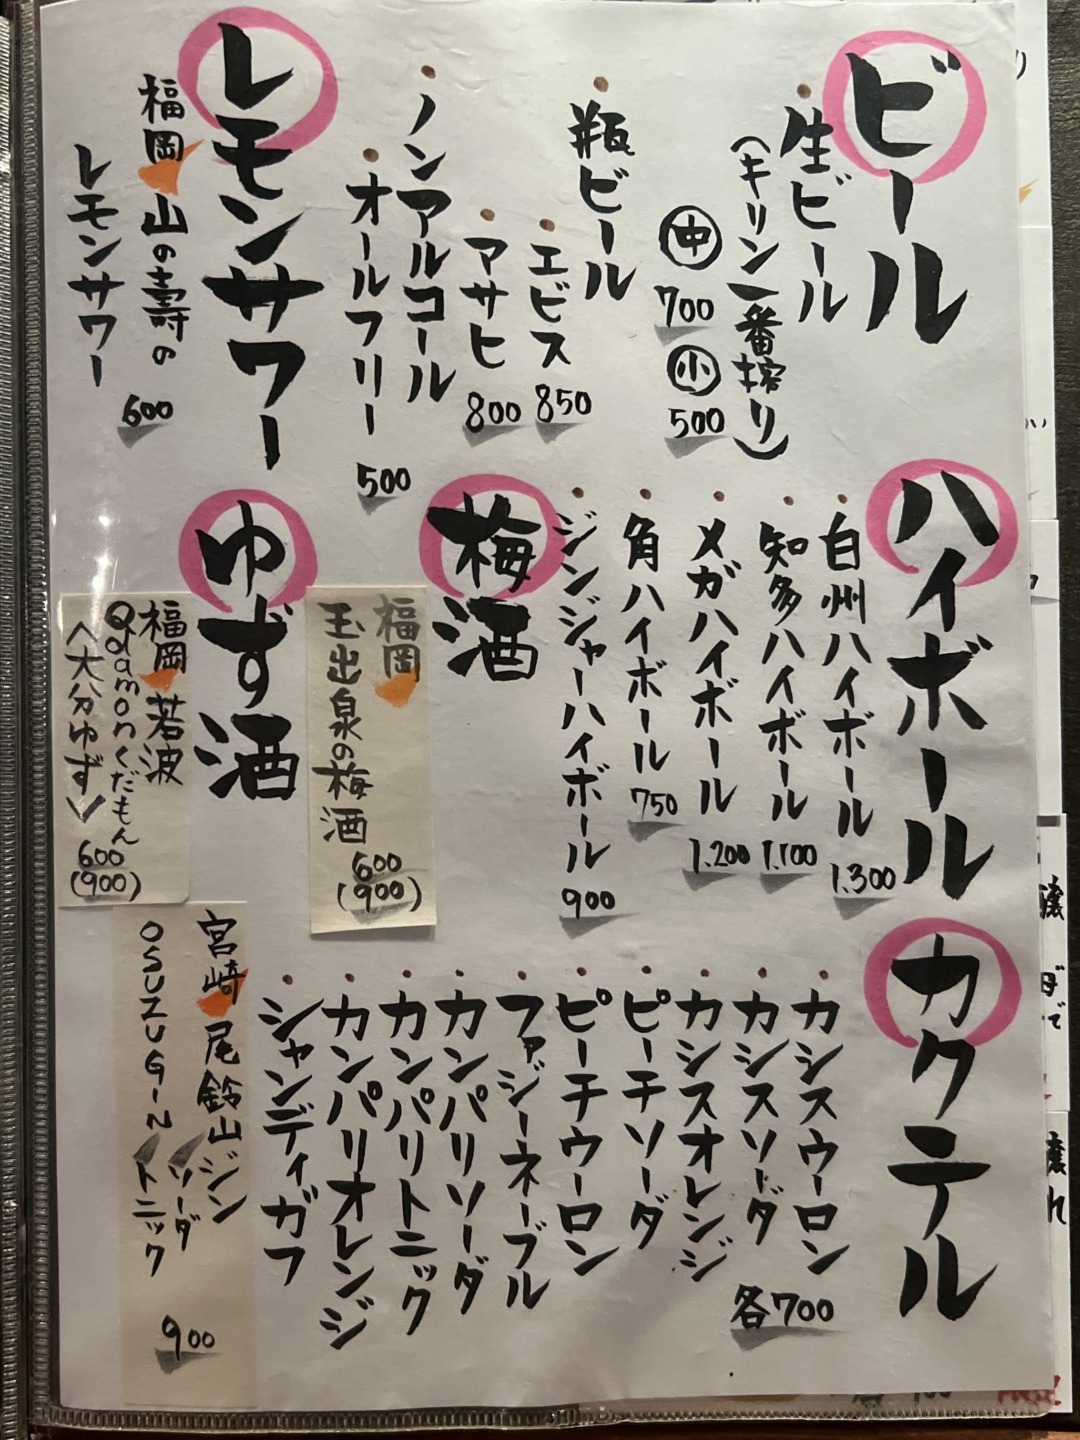 ビール
生ビール
(キリン一番搾り)
中 700 小 500
瓶ビール
エビス 850
アサヒ 800
ノンアルコール
オールフリー 500
レモンサワー
福岡 山の壽の
レモンサワー 600
ハイボール
白州ハイボール 1.300
知多ハイボール 1.100
メガハイボール 1.200
角ハイボール 750
ジンジャーハイボール 900
梅酒
福岡
玉出泉の梅酒 600
(900)
ゆず酒
福岡 若波
Qdamonくだもん
<大分ゆず>
600
(900)
カクテル
カシスウーロン
カシスソーダ
カシスオレンジ
ピーチソーダ
ピーチウーロン
ファジーネーブル
カンパリソーダ
カンパリトニック
カンパリオレンジ
シャンディガフ
各700
宮崎 尾鈴山ジン
OSUZU GIN
ソーダ
トニック
900